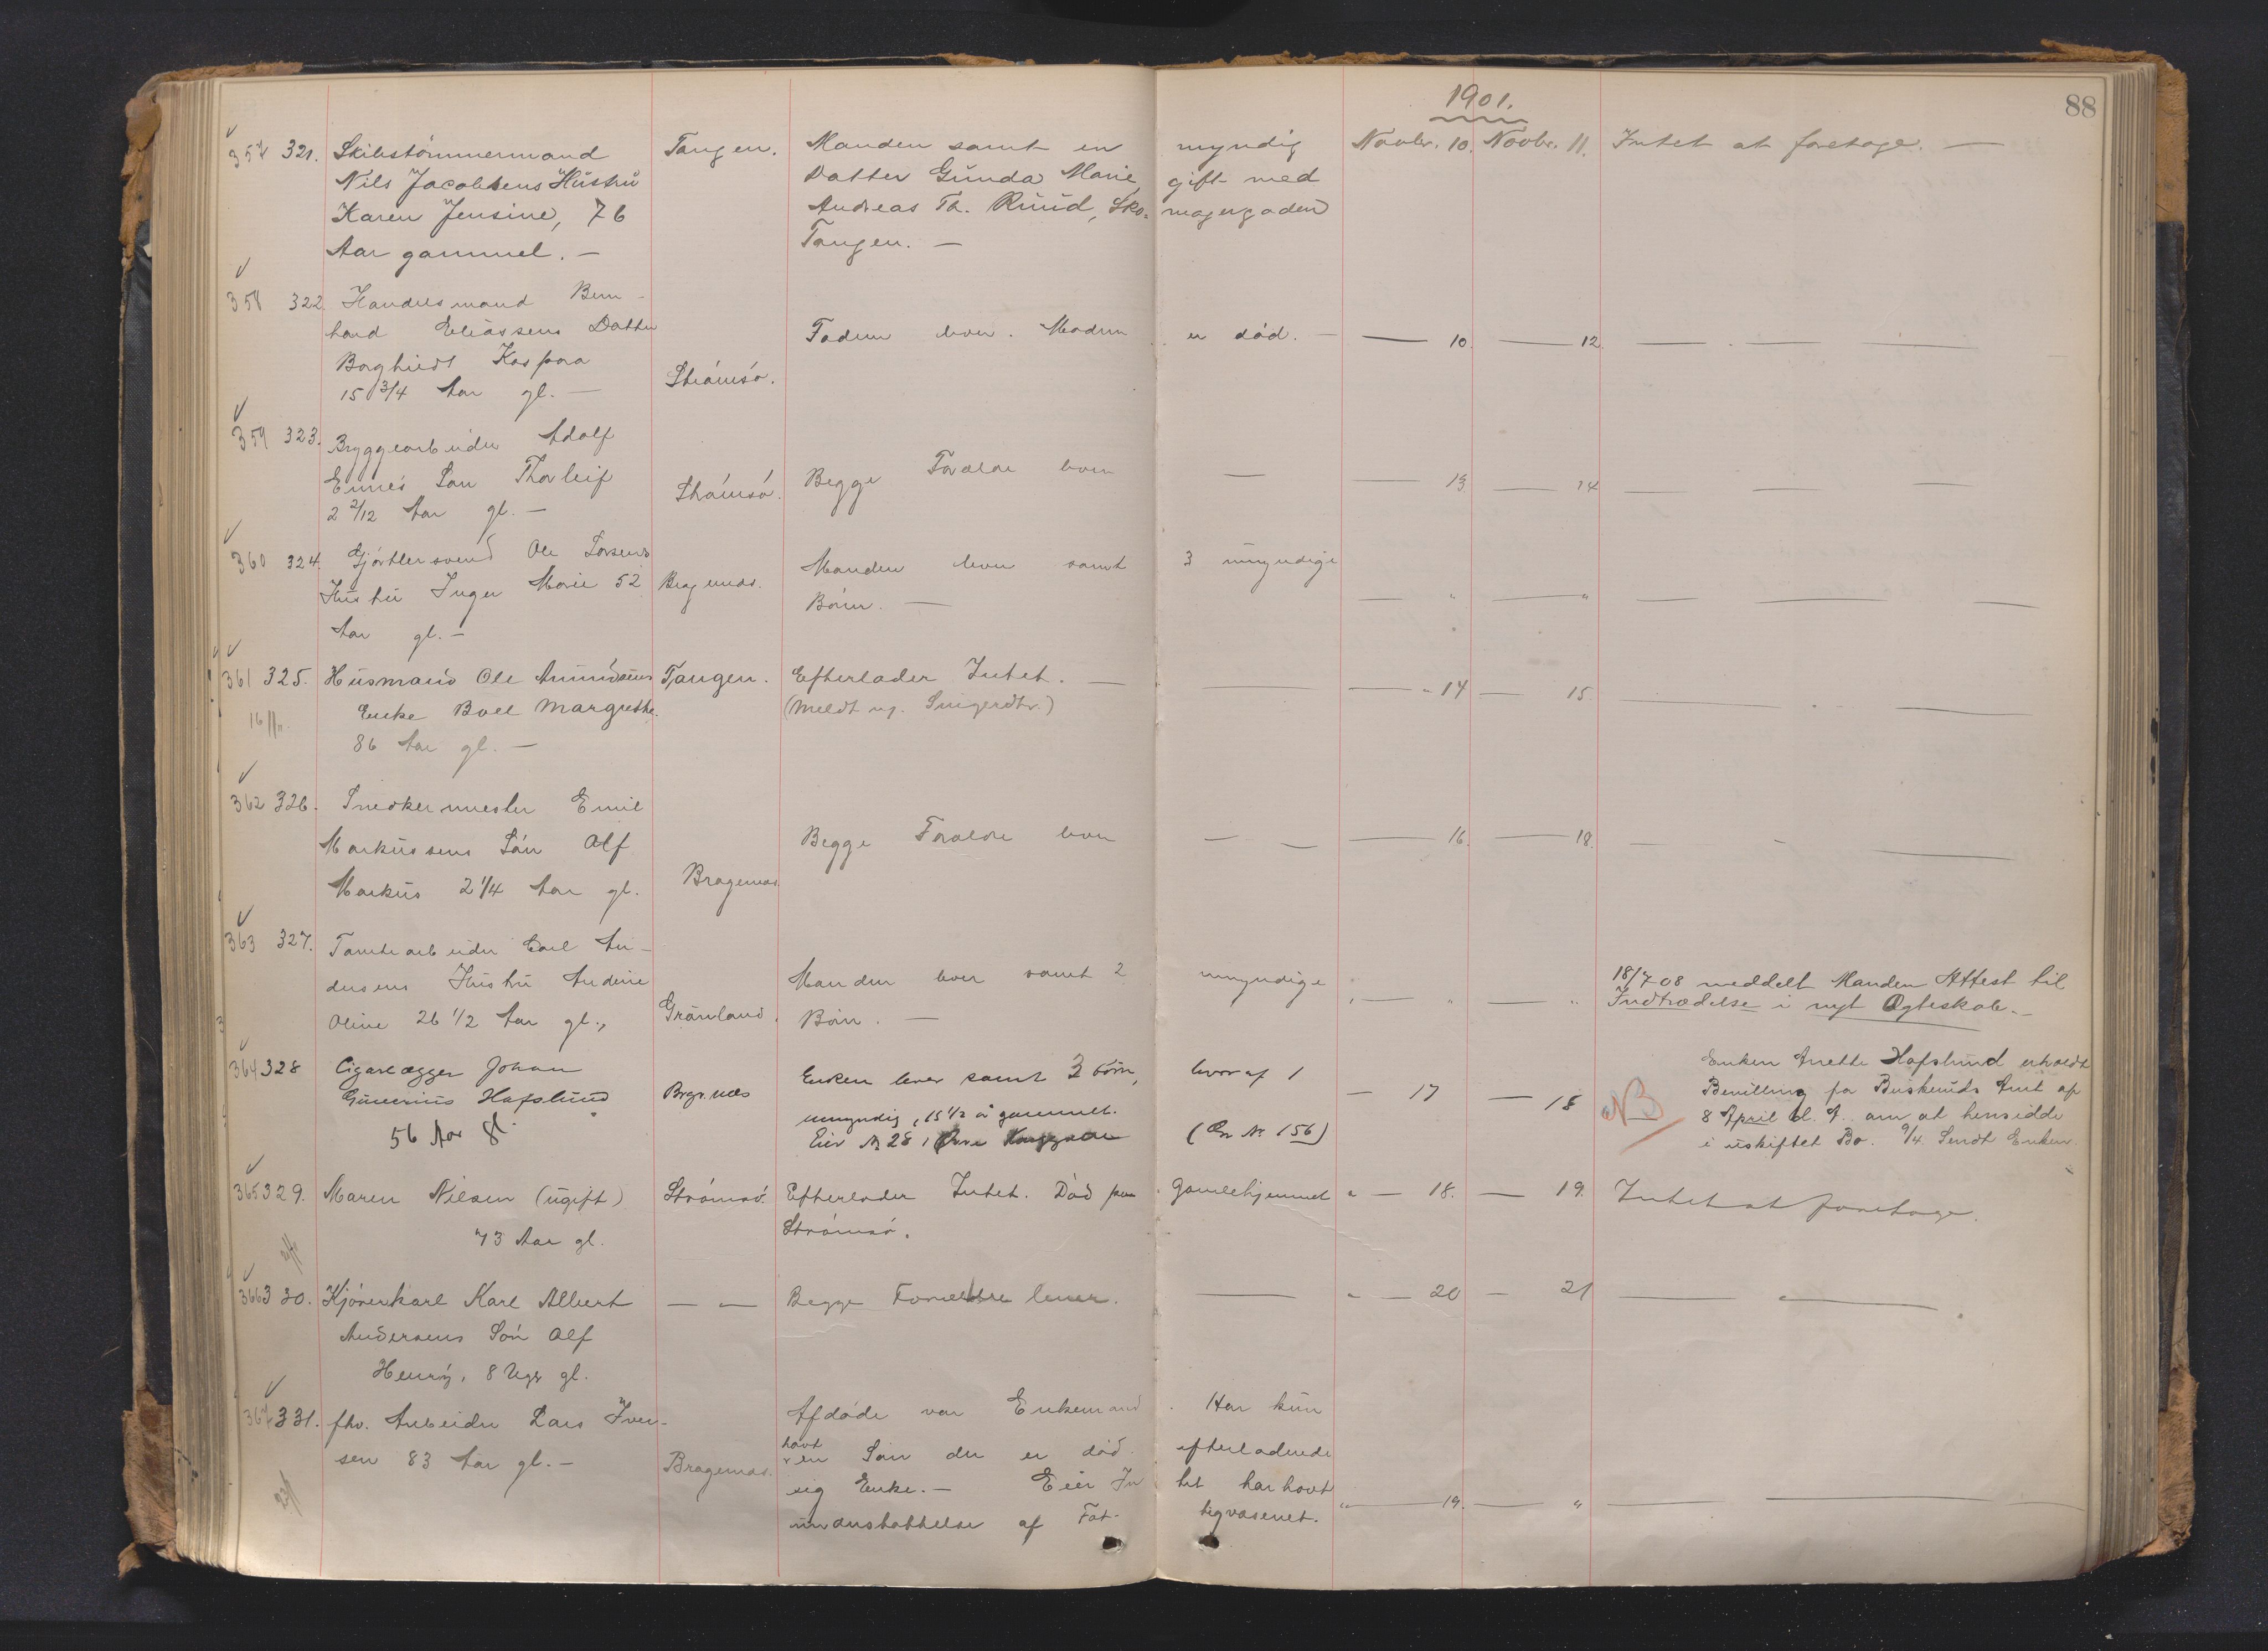 1901.
88
357 321. Skibstömmermand Tangen. Manden samt en myndig Novbr. 10. Novbr. 11. Intet at foretage. —
Nils Jacobsens Hustru Datter Gunda Marie, gift med
Karen Jensine, 76 Andreas Th. Ruud, Sko- magergaden
Aar gammel. — Tangen. —
358 322. Handelsmand Bern-
hard Eliassens Datter Faderen lever. Moderen er död. — — 10. — 12. — . — —
Borghild Kaspara Strömsö.
15 3/4 Aar gl. —
359 323. Bryggearbeider Adolf
Ennes Sön Thorleif Strömsö. Begge Forældre lever — — 13. — 14 — — —
2 2/12 Aar gl. —
360 324. Gjörtlersvend Ole Larsens Manden lever samt 3 umyndige
Hustru Inger Marie 52 Bragernæs. Börn. — — " — " — — —
Aar gl. —
361 325. Husmand Ole Amundsens Tangen. Efterlader Intet. — — — " 14 — 15. — . —
16/11. Enke Boel Margrethe. (Meldt af Svigerdtr.)
86 Aar gl. —
362 326. Snedkermester Emil
Markussens Sön Alf Begge Forældre lever — — — 16. — 18. — - —
Markus 2 1/4 Aar gl. Bragernæs
363 327. Tomtearbeider Carl An-
dersens Hustru Andrine Manden lever samt 2 umyndige " — " — " 18/7 08 meddelt Manden Attest til
Oline 26 1/2 Aar gl., Grönland. Börn. — Indtrædelse i nyt Ægteskab. —
364 328 Cigarlægger Johan Enken lever samt 3 börn, hvoraf 1 Enken Anette Hafslund erholdt
Gunerius Hafslund Brgr.næs umyndig, 15 1/2 a gammel. — 17 — 18 NB Bevilling fra Buskeruds Amt af
56 Aar gl. Eier N 28 i Övre (Cr № 156) 8 April d. A. om at hensidde
i uskiftet Bo. 9/4. Sendt Enken.
365 329. Maren Nilsen (ugift) Strömsö. Efterlader Intet. Död paa Gamlehjemmet " — 18. — 19. Intet at foretage.
73 Aar gl. Strömsö.
366 330. Kjörerkarl Karl Albert — " — Begge Forældre lever. — " — 20 — 21 — " —
Andersens Sön Alf
Henry, 8 Uger gl.
367 331. fhv. Arbeider Lars Iver- Afdöde var Enkemand. Har kun
sen 83 Aar gl. — Bragernæs. havt en Sön der er död. efterladende
sig Enke. — Eier In tet har havt
understöttelse af Fat- tigvæsenet. " — 19. — " — —